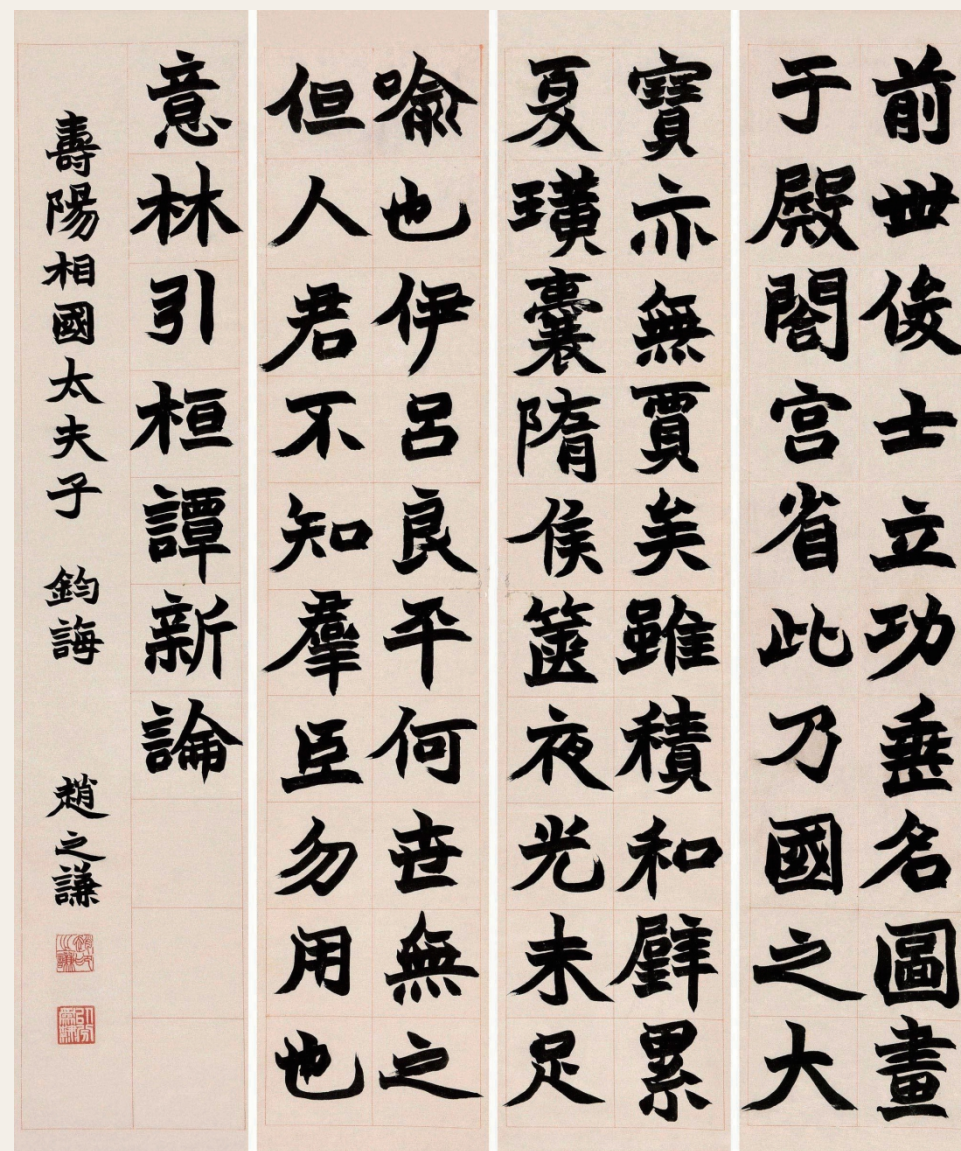 前世俊士立功垂名圖畫
于殿閣宮省此乃國之大
寶亦無賈矣雖積和璧累
夏璜囊隋侯篋夜光未足
喻也伊呂良平何世無之
但人君不知羣臣勿用也
意林引桓譚新論
壽陽相國太夫子 鈞誨 趙之謙